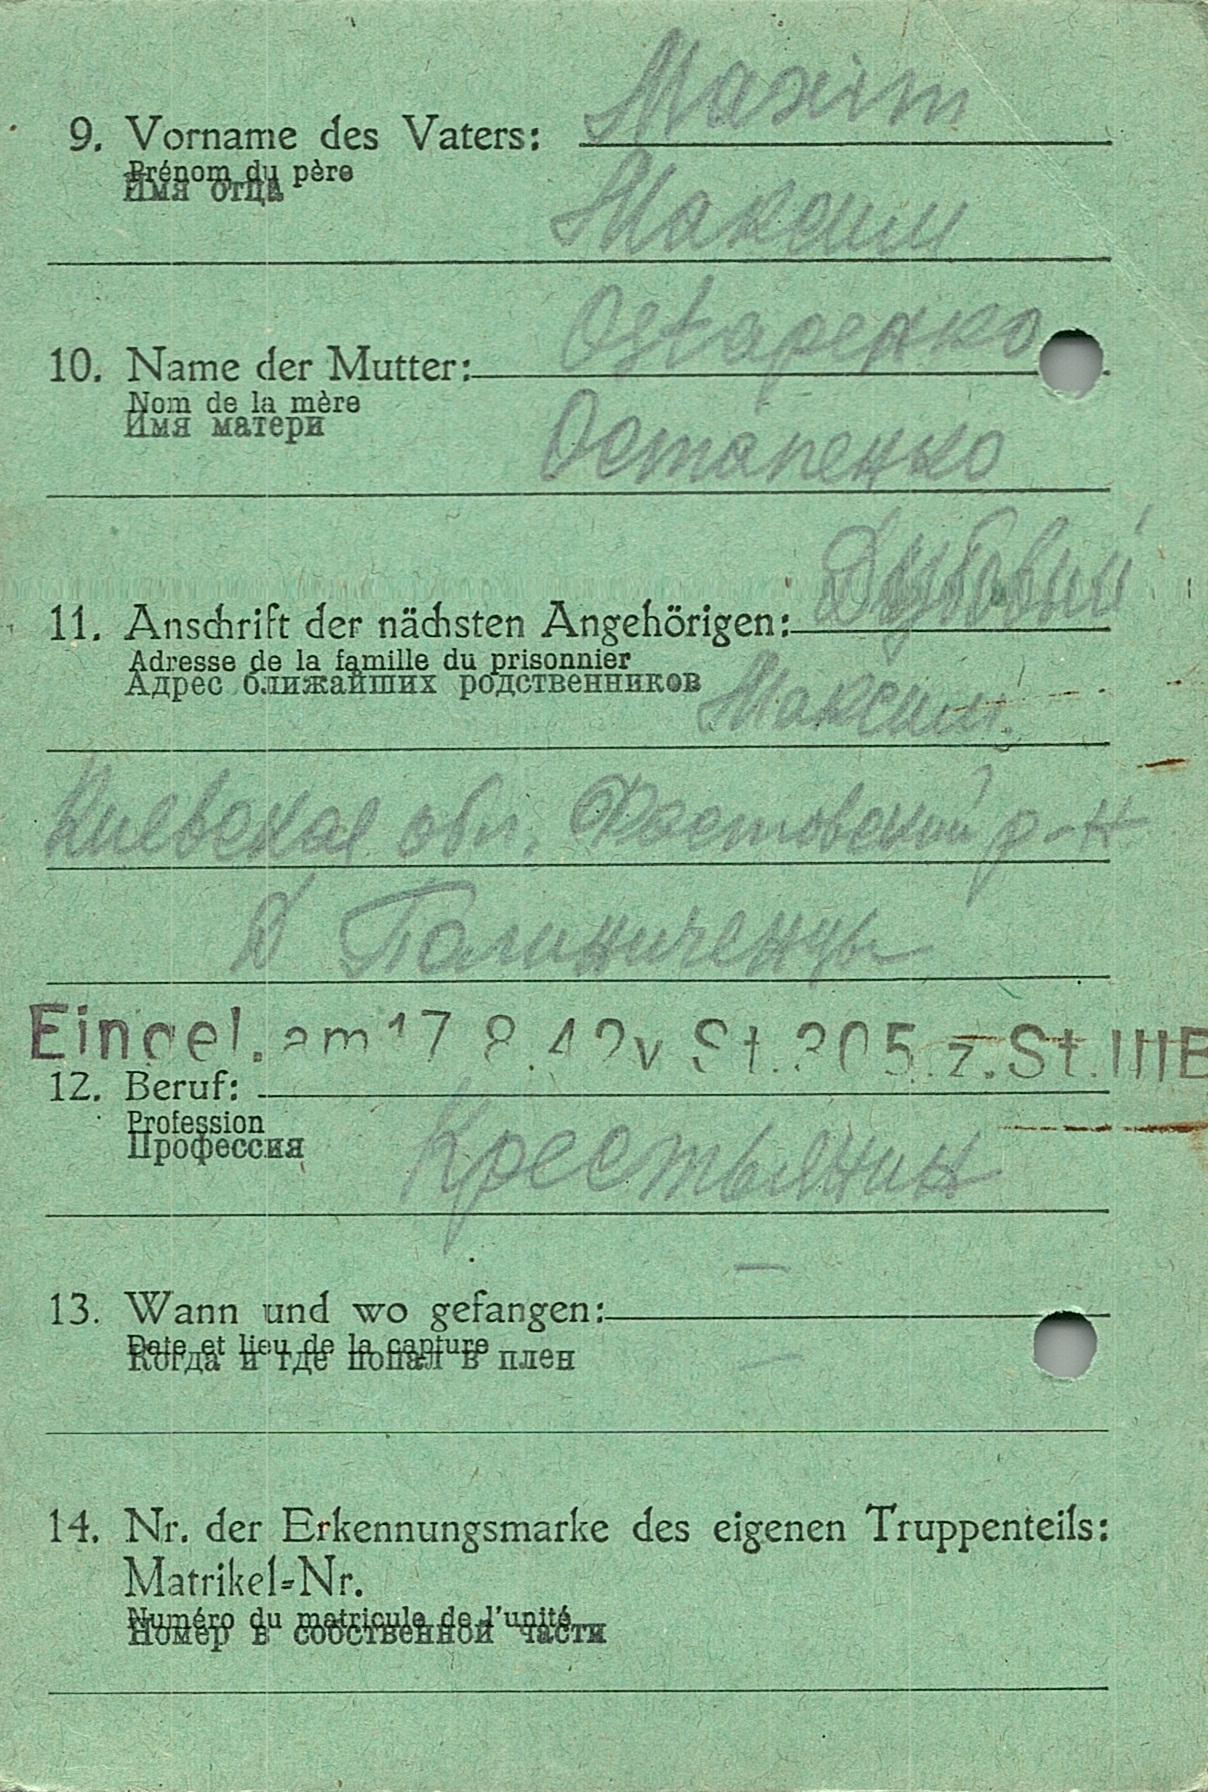 Maxim
9. Vorname des Vaters:
Prénom du père
Имя отца
Максим
Ostapenko
10. Name der Mutter:
Nom de la mère
Имя матери
Остапенко
Дубовий
11. Anschrift der nächsten Angehörigen:
Adresse de la famille du prisonnier
Адрес ближайших родственников
Максим.
Киевская обл. Фастовский р-н
Д Палиниченцы
Eingel. am 17.8.42 v St. 305 z. St. III B
12. Beruf:
Profession
Профессия
Крестьянин
—
13. Wann und wo gefangen:
Date et lieu de la capture
Когда и где попал в плен
—
14. Nr. der Erkennungsmarke des eigenen Truppenteils:
Matrikel-Nr.
Numéro du matricule de l'unité
Номер в собственной части